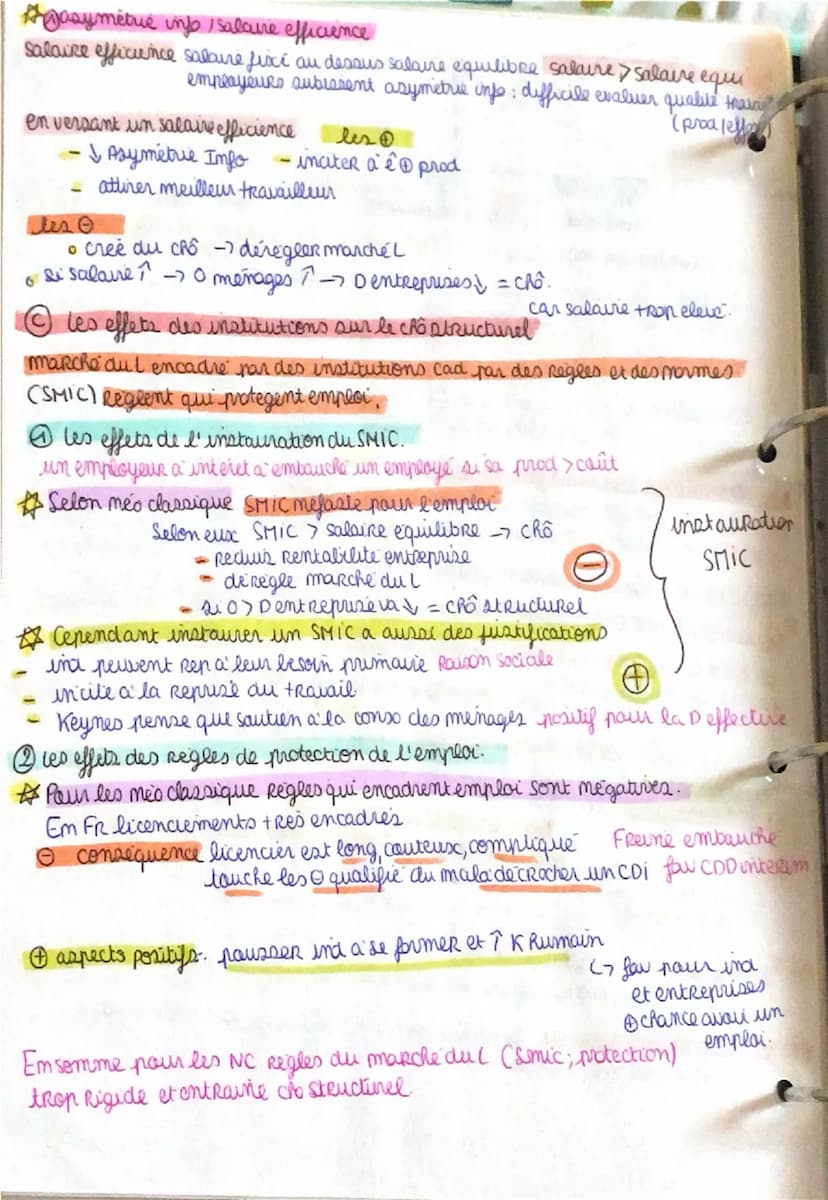 ☆ ① asymétrie info / salaire efficience
salaire efficience salaire fixé au dessus salaire equilibre salaire > salaire equi
employeurs subissent asymétrie info : difficile evaluer qualité travail
(prod/effort)
en versant un salaire efficience les ⊕
- ↓ Asymétrie Info - inciter a ê ⊕ prod
- attirer meilleur travailleur
les ⊖
• creé du chô → dérégler marché L
• si salaire ↑ → O ménages ↑ → D entreprises ↓ = chô.
car salaire trop elevé.
Ⓒ les effets des institutions sur le chô structurel
marché du L encadré par des institutions cad par des règles et des normes
(SMIC) règlent qui protègent emploi.
① les effets de l'instauration du SMIC.
un employeur a interet a embauché un employé si sa prod > coût
☆ Selon néo classique SMIC néfaste pour l'emploi
Selon eux SMIC > salaire equilibre → chô
- reduis rentabilité entreprise
- dérègle marché du L
- si O > D entreprise va ↓ = chô structurel
⊖
instauration
SMIC
☆ Cependant instaurer un SMIC a aussi des justifications
- ind peuvent rep a leur besoin primaire Raison sociale
- incite a la reprise du travail
- Keynes pense que soutien a la conso des ménages positif pour la D effective
⊕
② les effets des règles de protection de l'emploi.
☆ Pour les néo classique règles qui encadrent emploi sont négatives.
En FR licenciements très encadrés
⊖ conséquence licencier est long, couteux, compliqué Freine embauche
touche les ⊖ qualifié du mal a décrocher un CDI fav CDD interim
⊕ aspects positifs. pousser ind a se former et ↑ K humain
↳ fav pour ind
et entreprises
⊕ chance avoir un
emploi.
En somme pour les NC règles du marché du L (Smic ; protection)
trop rigide et entraine chô structurel.